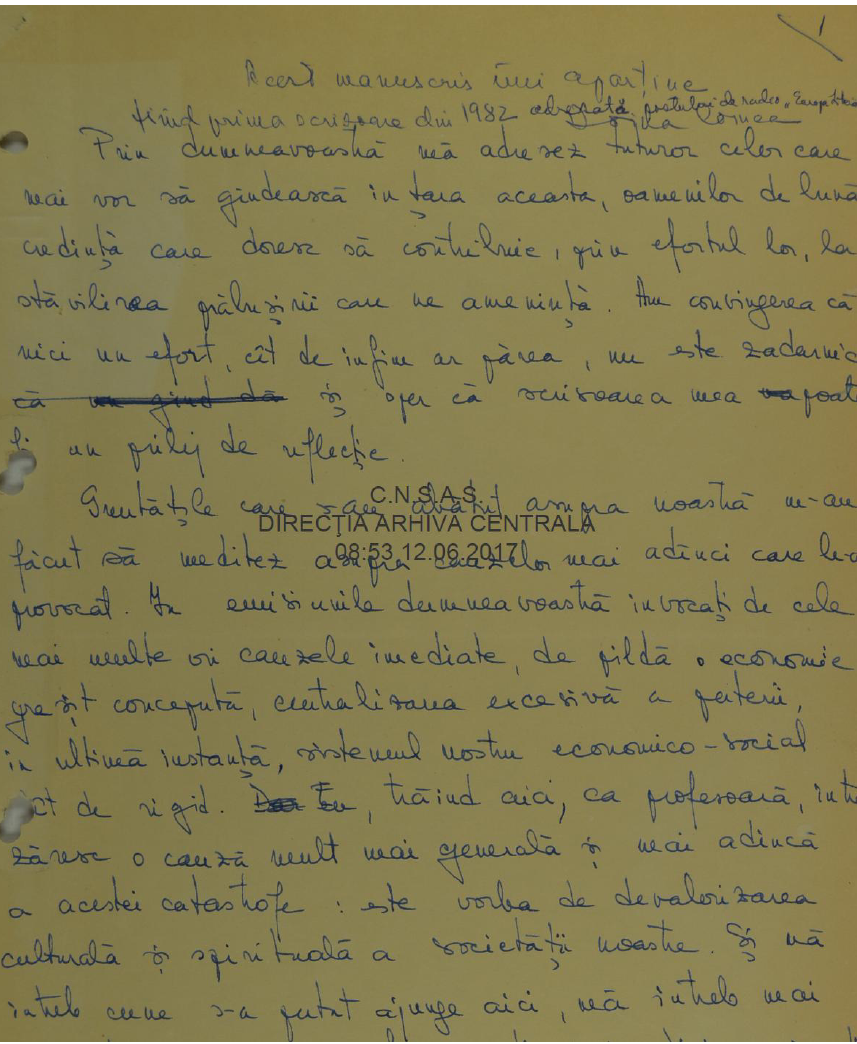 1
Acest manuscris îmi aparține
fiind prima scrisoare din 1982 adresată postului de radio „Europa liberă
Doina Cornea
Prin dumneavoastră mă adresez tuturor celor care
mai vor să gîndească în țara aceasta, oamenilor de bună
credință care doresc să contribuie, prin efortul lor, la
stăvilirea prăbușirii care ne amenință. Am convingerea că
nici un efort, cît de infim ar părea, nu este zadarnic
că un gînd dă și sper că scrisoarea mea va poate
fi un prilej de reflecție.
Greutățile care s-au abătut asupra noastră m-au
C.N.S.A.S.
DIRECȚIA ARHIVA CENTRALĂ
08:53 12.06.2017
făcut să meditez asupra cauzelor mai adînci care le-a
provocat. În emisiunile dumneavoastră invocați de cele
mai multe ori cauzele imediate, de pildă o economie
greșit concepută, centralizarea excesivă a puterii,
în ultimă instanță, sistemul nostru economico-social
atît de rigid. Dar Eu, trăind aici, ca profesoară, între
zăresc o cauză mult mai generală și mai adîncă
a acestei catastrofe : este vorba de devalorizarea
culturală și spirituală a societății noastre. Și mă
întreb cum s-a putut ajunge aici, mă întreb mai